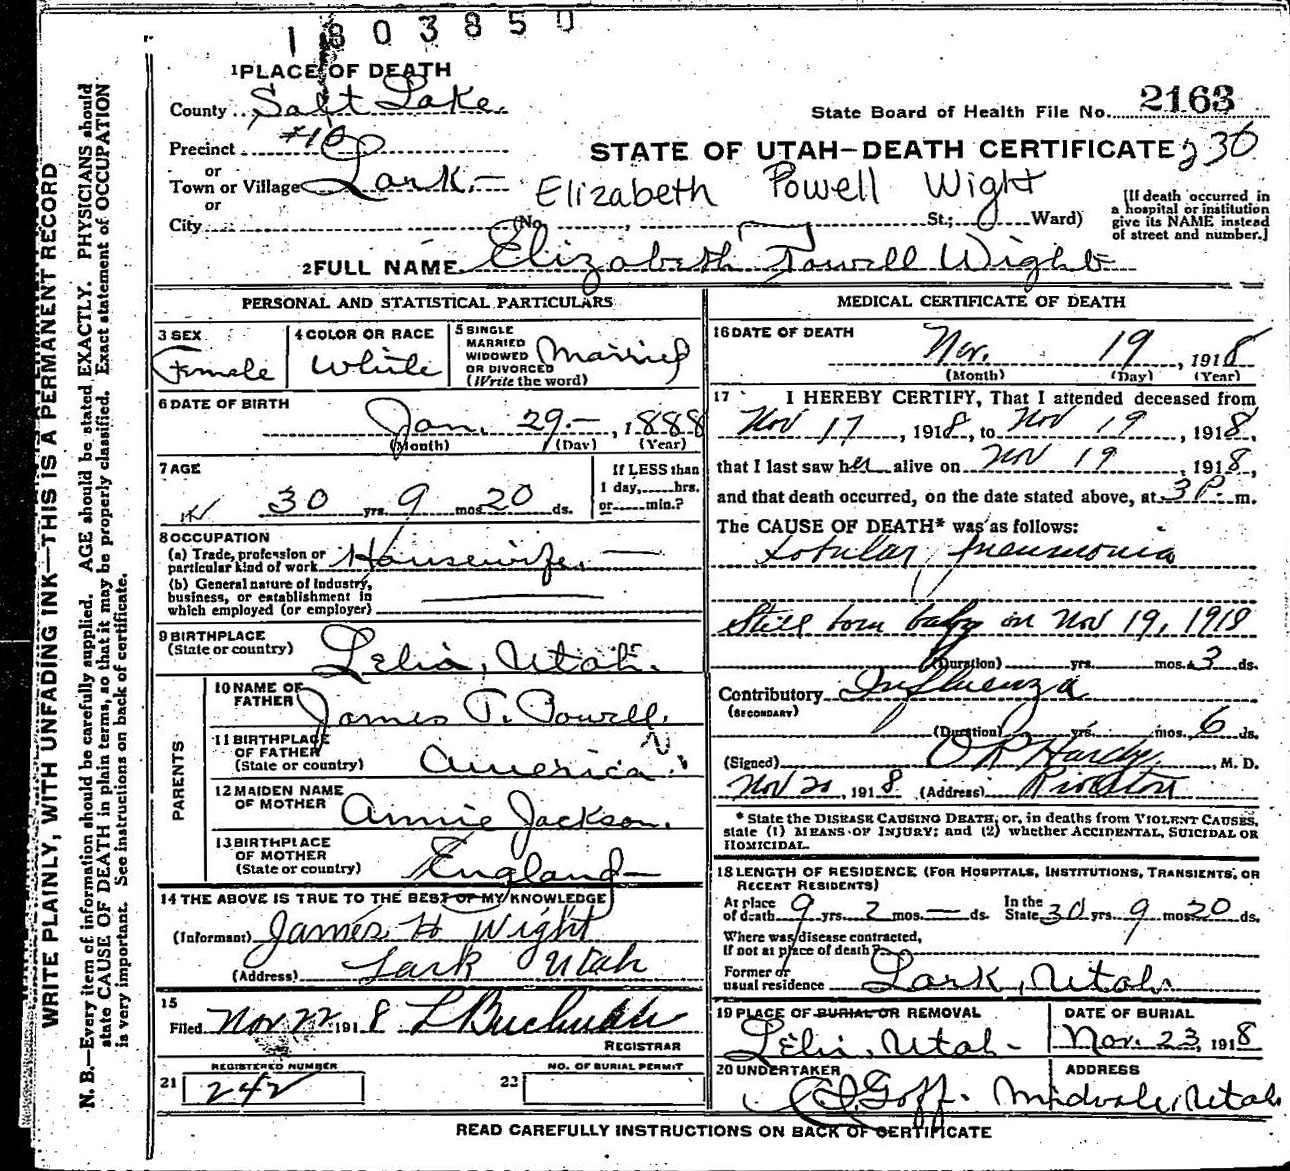 1803850
1 PLACE OF DEATH
County Salt Lake.
State Board of Health File No. 2163
Precinct #10
STATE OF UTAH—DEATH CERTIFICATE 236
or
Town or Village Lark.—
Elizabeth Powell Wight
or
City (No. , St.; Ward)
[If death occurred in
a hospital or institution
give its NAME instead
of street and number.]
2 FULL NAME Elizabeth Powell Wight
PERSONAL AND STATISTICAL PARTICULARS
3 SEX
Female
4 COLOR OR RACE
White
5 SINGLE
MARRIED
WIDOWED
OR DIVORCED
(Write the word)
Married
6 DATE OF BIRTH
Jan. 29.—, 1888
(Month) (Day) (Year)
7 AGE
30 yrs. 9 mos. 20 ds.
If LESS than
1 day, hrs.
or min.?
8 OCCUPATION
(a) Trade, profession or
particular kind of work Housewife. —
(b) General nature of Industry,
business, or establishment in
which employed (or employer)
9 BIRTHPLACE
(State or country) Lehi, Utah.
PARENTS
10 NAME OF
FATHER James T. Powell.
11 BIRTHPLACE
OF FATHER
(State or country) America.
12 MAIDEN NAME
OF MOTHER Annie Jackson.
13 BIRTHPLACE
OF MOTHER
(State or country) England—
14 THE ABOVE IS TRUE TO THE BEST OF MY KNOWLEDGE
(Informant) James H Wight
(Address) Lark Utah
15
Filed Nov 22 1918
REGISTRAR
REGISTERED NUMBER
21 242
NO. OF BURIAL PERMIT
22
MEDICAL CERTIFICATE OF DEATH
16 DATE OF DEATH
Nov. 19, 1918
(Month) (Day) (Year)
17 I HEREBY CERTIFY, That I attended deceased from
Nov 17, 1918, to Nov 19, 1918,
that I last saw her alive on Nov 19, 1918,
and that death occurred, on the date stated above, at 3 P. m.
The CAUSE OF DEATH* was as follows:
Lobular Pneumonia
Still born baby on Nov 19, 1918
(Duration) yrs. mos. 3 ds.
Contributory Influenza
(SECONDARY)
(Duration) yrs. mos. 6 ds.
(Signed) O R Hardy, M. D.
Nov 20, 1918 (Address) Riverton
* State the DISEASE CAUSING DEATH; or, in deaths from VIOLENT CAUSES,
state (1) MEANS OF INJURY; and (2) whether ACCIDENTAL, SUICIDAL OR
HOMICIDAL.
18 LENGTH OF RESIDENCE (FOR HOSPITALS, INSTITUTIONS, TRANSIENTS, OR
RECENT RESIDENTS)
At place
of death 9 yrs. 2 mos. — ds.
In the
State 30 yrs. 9 mos. 20 ds.
Where was disease contracted,
If not at place of death?
Former or
usual residence Lark, Utah.
19 PLACE OF BURIAL OR REMOVAL
Lehi, Utah—
DATE OF BURIAL
Nov. 23, 1918
20 UNDERTAKER
Goff.
ADDRESS
Midvale, Utah
READ CAREFULLY INSTRUCTIONS ON BACK OF CERTIFICATE
WRITE PLAINLY, WITH UNFADING INK—THIS IS A PERMANENT RECORD
N. B.—Every item of information should be carefully supplied. AGE should be stated EXACTLY. PHYSICIANS should
state CAUSE OF DEATH in plain terms, so that it may be properly classified. Exact statement of OCCUPATION
is very important. See instructions on back of certificate.